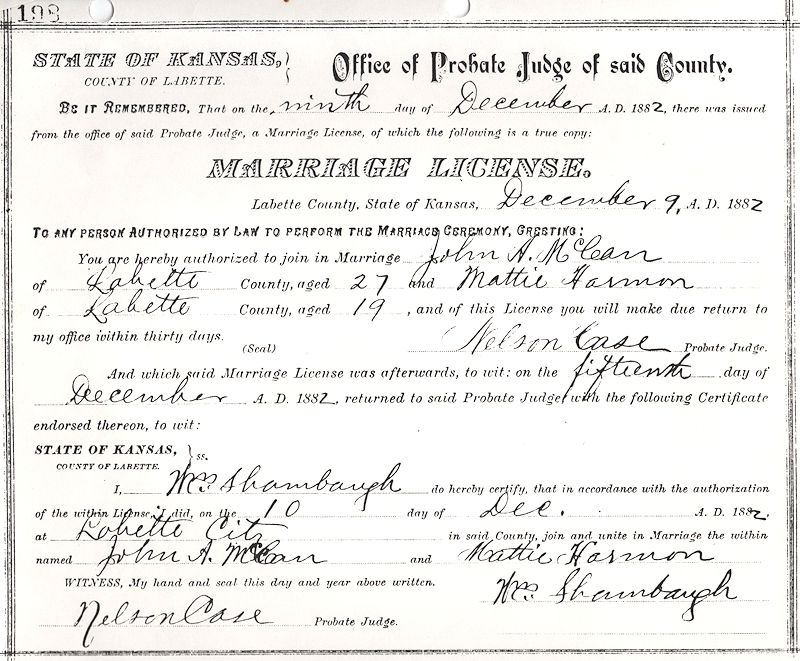 198
STATE OF KANSAS,
COUNTY OF LABETTE.
Office of Probate Judge of said County.
BE IT REMEMBERED, That on the ninth day of December A. D. 1882, there was issued
from the office of said Probate Judge, a Marriage License, of which the following is a true copy:
MARRIAGE LICENSE.
Labette County, State of Kansas, December 9, A. D. 1882
TO ANY PERSON AUTHORIZED BY LAW TO PERFORM THE MARRIAGE CEREMONY, GREETING:
You are hereby authorized to join in Marriage John A. McCan
of Labette County, aged 27 and Mattie Harmon
of Labette County, aged 19, and of this License you will make due return to
my office within thirty days.
(Seal) Nelson Case Probate Judge.
And which said Marriage License was afterwards, to wit: on the fifteenth day of
December A. D. 1882, returned to said Probate Judge, with the following Certificate
endorsed thereon, to wit:
STATE OF KANSAS,
COUNTY OF LABETTE. ss.
I, Wm Shambaugh do hereby certify, that in accordance with the authorization
of the within License, I did, on the 10 day of Dec. A. D. 1882,
at Labette City in said County, join and unite in Marriage the within
named John A. McCan and Mattie Harmon
WITNESS, My hand and seal this day and year above written.
Wm Shambaugh
Nelson Case Probate Judge.